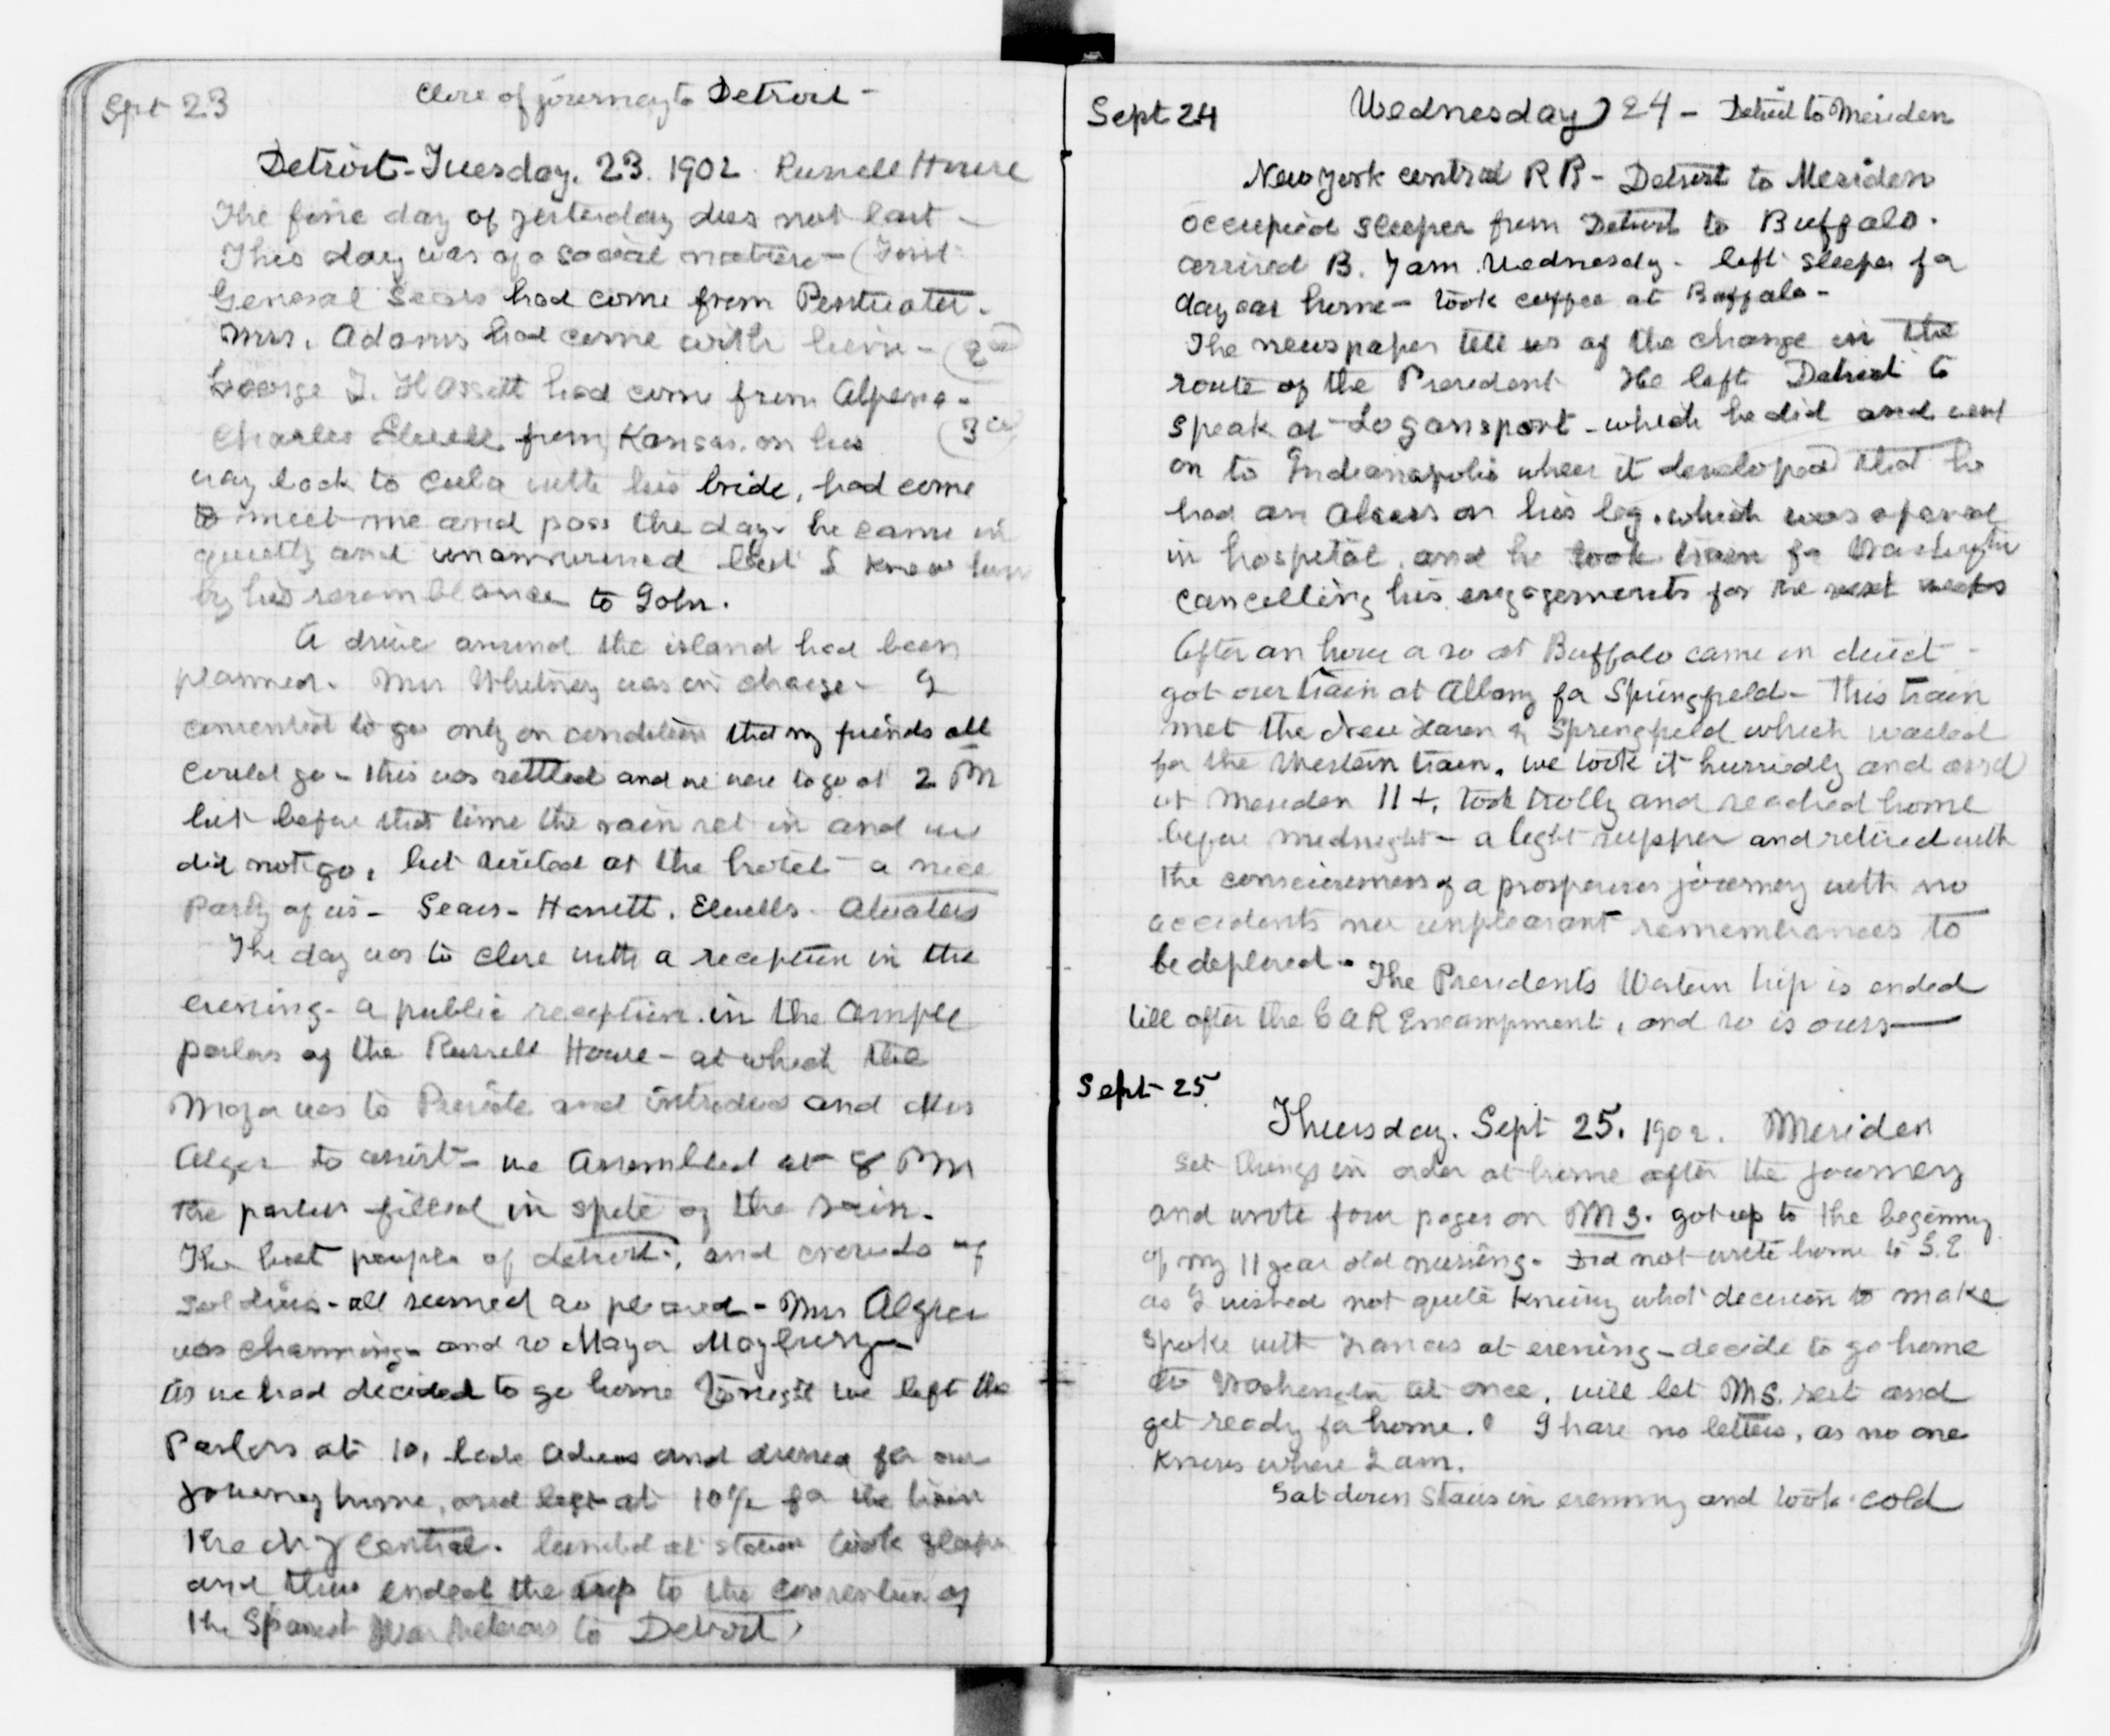 Sept 23
Close of journey to Detroit -
Detroit - Tuesday. 23. 1902 Russell House
The fine day of yesterday does not last -
This day was of a social nature - (First
General Sears had come from Pentwater.
Mrs. Adams had come with him - (2nd
George I. Hassett had come from Alpena -
Charles Elwell from Kansas, on his (3rd
way back to Cuba with his bride, had come
to meet me and pass the day. he came in
quietly and unannounced but I knew him
by his resemblance to John.
A drive around the island had been
planned. Mrs Whitney was in charge - I
consented to go only on condition that my friends all
could go - this was settled and we were to go at 2 PM
but before that time the rain set in and we
did not go, but visited at the hotel - a nice
party of us - Sears - Hassett. Elwells - Atwaters
The day was to close with a reception in the
evening - a public reception in the ample
parlors of the Russell House - at which the
Mayor was to Preside and introduce and Mrs
Alger to assist - we Assembled at 8 PM
the parlors filled in spite of the rain.
The best people of detroit, and crowds of
soldiers - all seemed so pleased - Mrs Alger
was charming - and so Mayor Maybury -
As we had decided to go home tonight we left the
Parlors at 10, bade adieus and dressed for our
journey home, and left at 10½ for the train
the NY Central. at station took sleeper
and thus ended the trip to the convention of
the Spanish War Veterans to Detroit.
Sept 24
Wednesday 24 - Detroit to Meriden
New York central R R - Detroit to Meriden
occupied sleeper from Detroit to Buffalo.
arrived B. 7 am Wednesdy - left sleeper for
day car home - took coffee at Buffalo -
The newspaper tell us of the change in the
route of the President He left Detroit to
speak at Logansport - which he did and went
on to Indianapolis when it developed that he
had an Abcess on his leg. which was opened
in hospital, and he took train for Washington
cancelling his engagements for the next weeks
After an hour or so at Buffalo came on direct -
got our train at Albany for Springfield - This train
met the New Haven & Springfield which waited
for the Western train. we took it hurriedly and arrd
at Meriden 11+, took trolly and reached home
before midnight - a light supper and retired with
the consciousness of a prosperous journey with no
accidents nor unpleasant remembrances to
be deplored. The Presidents Western trip is ended
till after the G A R Encampment, and so is ours -
Sept 25
Thursday. Sept 25. 1902. Meriden
Set things in order at home after the journey
and wrote four pages on MS. got up to the beginning
of my 11 year old nursing. Did not write home to S. E
as I wished not quite knowing what decision to make
Spoke with Frances at evening - decide to go home
to Washington at once, will let MS. rest and
get ready for home. I have no letters, as no one
knows where I am.
Sat down stairs in evening and took cold